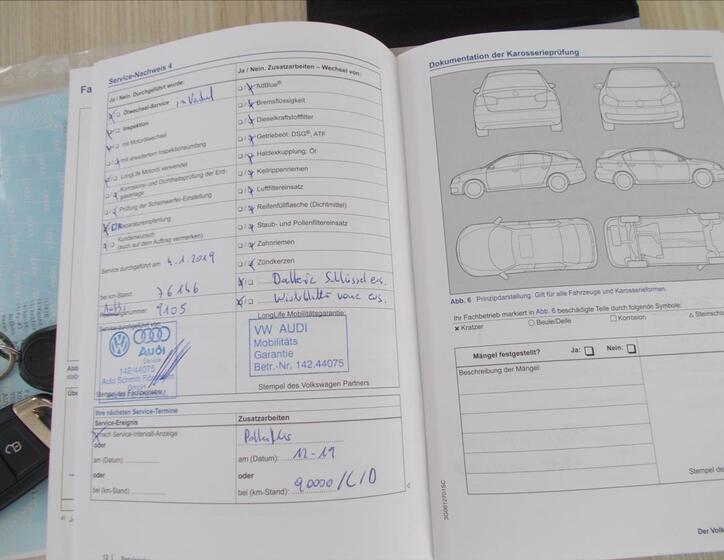 Service-Nachweis 4
Ja / Nein. Durchgeführt wurde:
Ölwechsel-Service
Inspektion
mit Motorölwechsel
mit erweitertem Inspektionsumfang
LongLife Motoröl verwendet
Korrosions- und Dichtheitsprüfung der Erd-
gasanlage
Prüfung der Scheinwerfer-Einstellung
Reparaturempfehlung
Kundenwunsch
(auch auf dem Auftrag vermerken)
Service durchgeführt am: 4.1.2019
bei km-Stand: 76146
9105
VW AUDI
Audi
Service
142/44075
Auto Schmitt
Stempel des Fachbetriebs
Ja / Nein. Zusatzarbeiten – Wechsel von:
AdBlue®
Bremsflüssigkeit
Dieselkraftstofffilter
Getriebeöl: DSG®, ATF
Haldexkupplung: Öl
Keilrippenriemen
Luftfiltereinsatz
Reifenfüllflasche (Dichtmittel)
Staub- und Pollenfiltereinsatz
Zahnriemen
Zündkerzen
LongLife Mobilitätsgarantie:
VW AUDI
Mobilitäts
Garantie
Betr.-Nr. 142.44075
Stempel des Volkswagen Partners
Ihre nächsten Service-Termine
Service-Ereignis
nach Service-Intervall-Anzeige
oder
am (Datum):
oder
bei (km-Stand):
Zusatzarbeiten
am (Datum): 12-19
oder
bei (km-Stand): 90000
12
Dokumentation der Karosserieprüfung
Abb. 6 Prinzipdarstellung. Gilt für alle Fahrzeuge und Karosserieformen.
Ihr Fachbetrieb markiert in Abb. 6 beschädigte Teile durch folgende Symbole:
x Kratzer ○ Beule/Delle □ Korrosion △ Steinschl
Mängel festgestellt? Ja: Nein:
Beschreibung der Mängel:
Stempel des
3G0012701SC
Der Volk